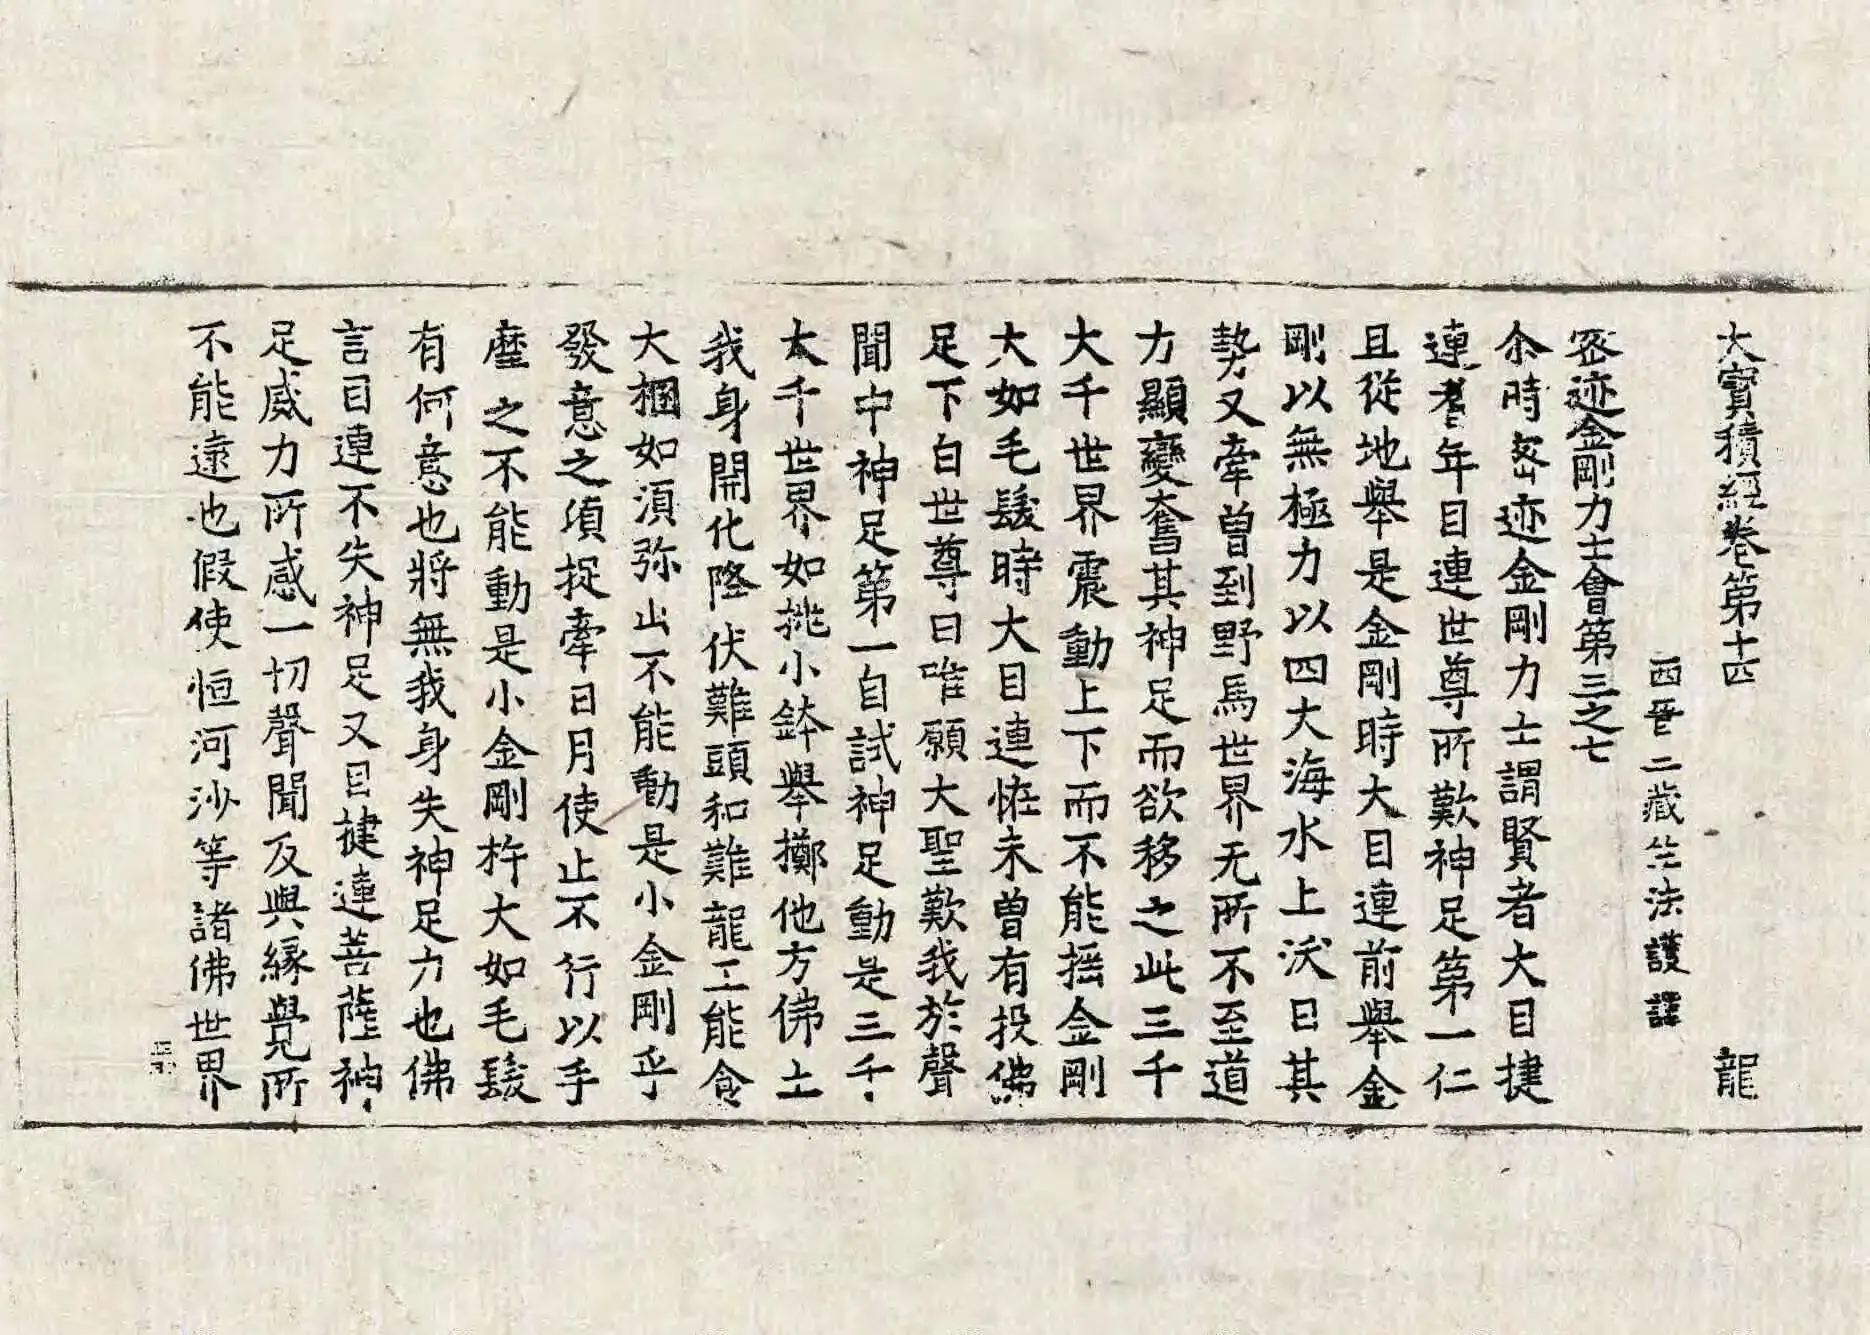 大寶積經卷第十四 龍
西晉三藏竺法護譯
密迹金剛力士會第三之七
尒時密迹金剛力士謂賢者大目揵
連耆年目連世尊所歎神足第一仁
且從地舉是金剛時大目連前舉金
剛以無極力以四大海水上沃日其
勢又牽曾到野馬世界无所不至道
力顯變奮其神足而欲移之此三千
大千世界震動上下而不能搖金剛
大如毛髮時大目連恠未曾有投佛
足下白世尊曰唯願大聖歎我於聲
聞中神足第一自試神足動是三千
大千世界如挑小鉢舉擲他方佛土
我身開化降伏難頭和難龍王能食
大摑如須弥山不能動是小金剛乎
發意之須捉牽日月使止不行以手
㕓之不能動是小金剛杵大如毛髮
有何意也將無我身失神足力也佛
言目連不失神足又目揵連菩薩神
足威力所感一切聲聞及與緣覺所
不能逮也假使恒河沙等諸佛世界